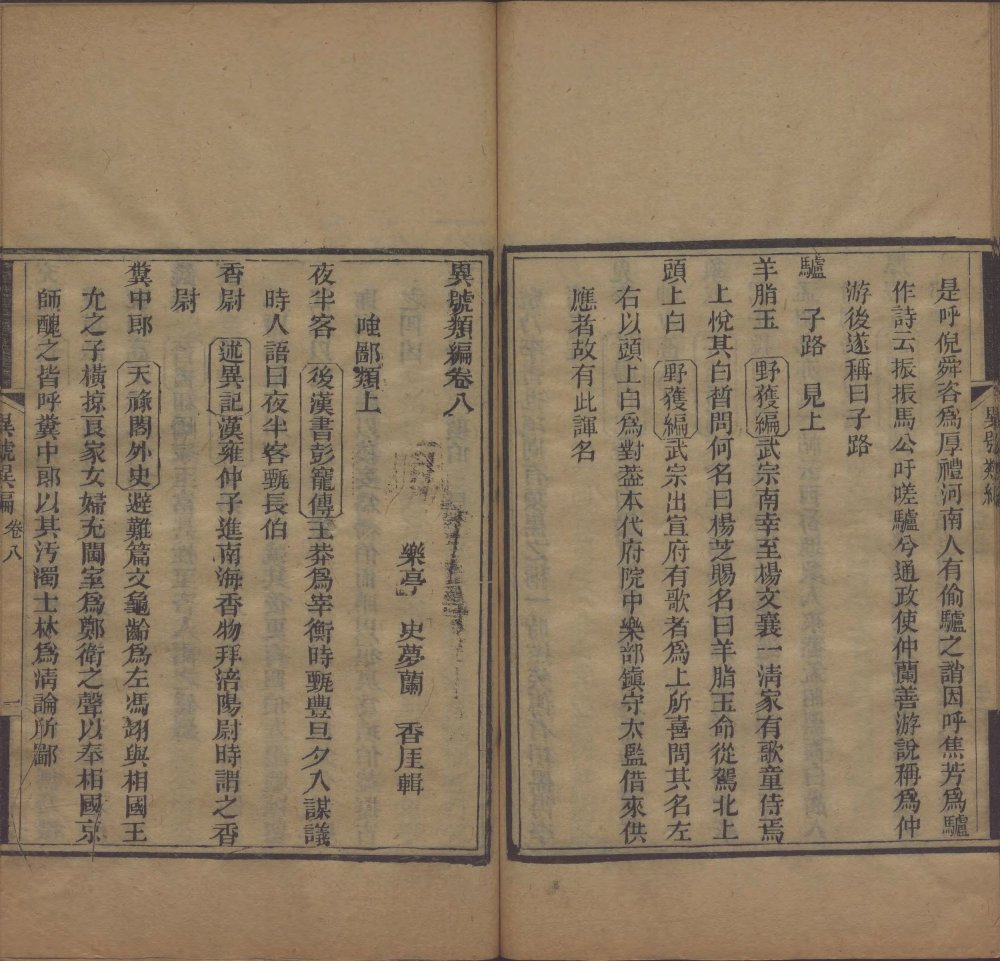 是呼倪舜咨爲厚禮河南人有偷驢之誚因呼焦芳爲驢
作詩云振振馬公吁嗟驢兮通政使仲蘭善游說稱爲仲
游後遂稱曰子路
驢 子路 見上
羊脂玉 野獲編武宗南幸至楊文襄一淸家有歌童侍焉
上悅其白晢問何名曰楊芝賜名曰羊脂玉命從駕北上
頭上白 野獲編武宗出宣府有歌者爲上所喜問其名左
右以頭上白爲對葢本代府院中樂部鎭守太監借來供
應者故有此諢名
異號類編
異號類編卷八
樂亭 史夢蘭 香厓輯
嗤鄙類上
夜半客 後漢書彭寵傳王莽爲宰衡時甄豐旦夕入謀議
時人語曰夜半客甄長伯
香尉 述異記漢雍仲子進南海香物拜涪陽尉時謂之香
尉
糞中郎 天祿閣外史避難篇文龜齡爲左馮翊與相國王
允之子橫掠良家女婦充閫室爲鄭衛之聲以奉相國京
師醜之皆呼糞中郎以其汚濁士林爲淸論所鄙
異號異編 卷八 一